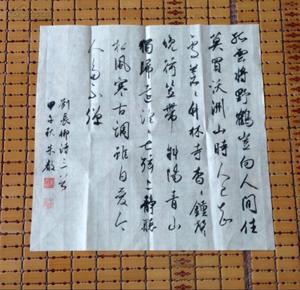 孤雲將野鶴豈向人間住
莫買沃洲山時人已知
處蒼蒼竹林寺杳杳鐘聲
晚荷笠帶斜陽青山
獨歸遠泠泠七弦上靜聽
松風寒古調雖自愛今
人多不彈
劉長卿詩三首
甲午秋